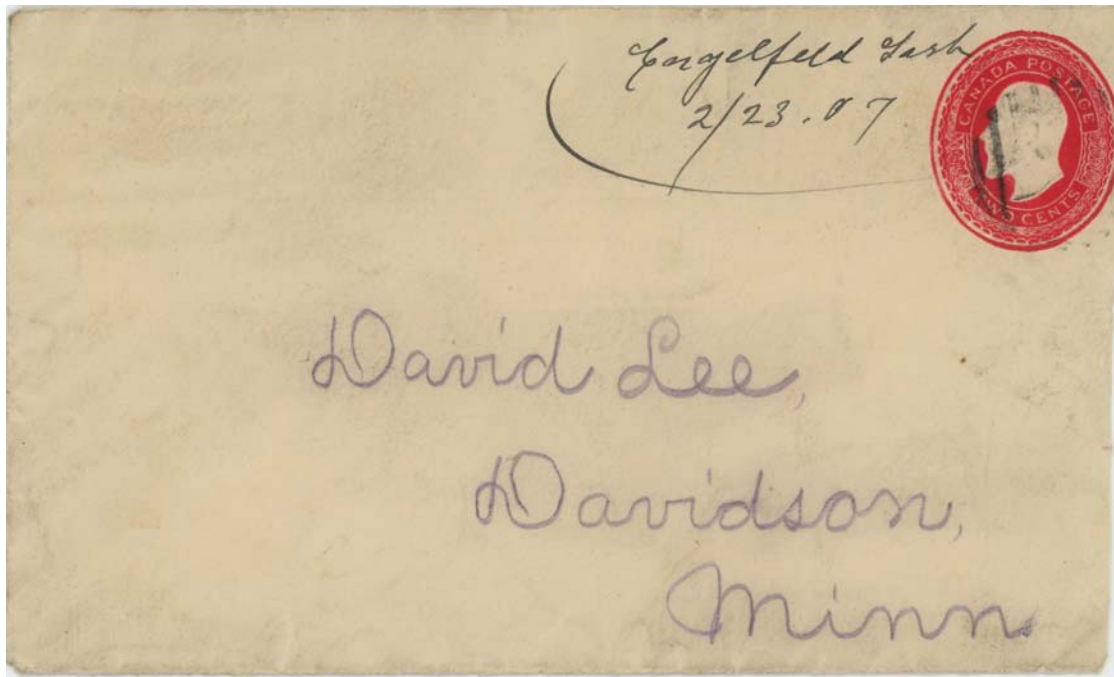 Engelfeld Sask
2/23.07
CANADA POSTAGE
TWO CENTS
David Lee,
Davidson,
Minn